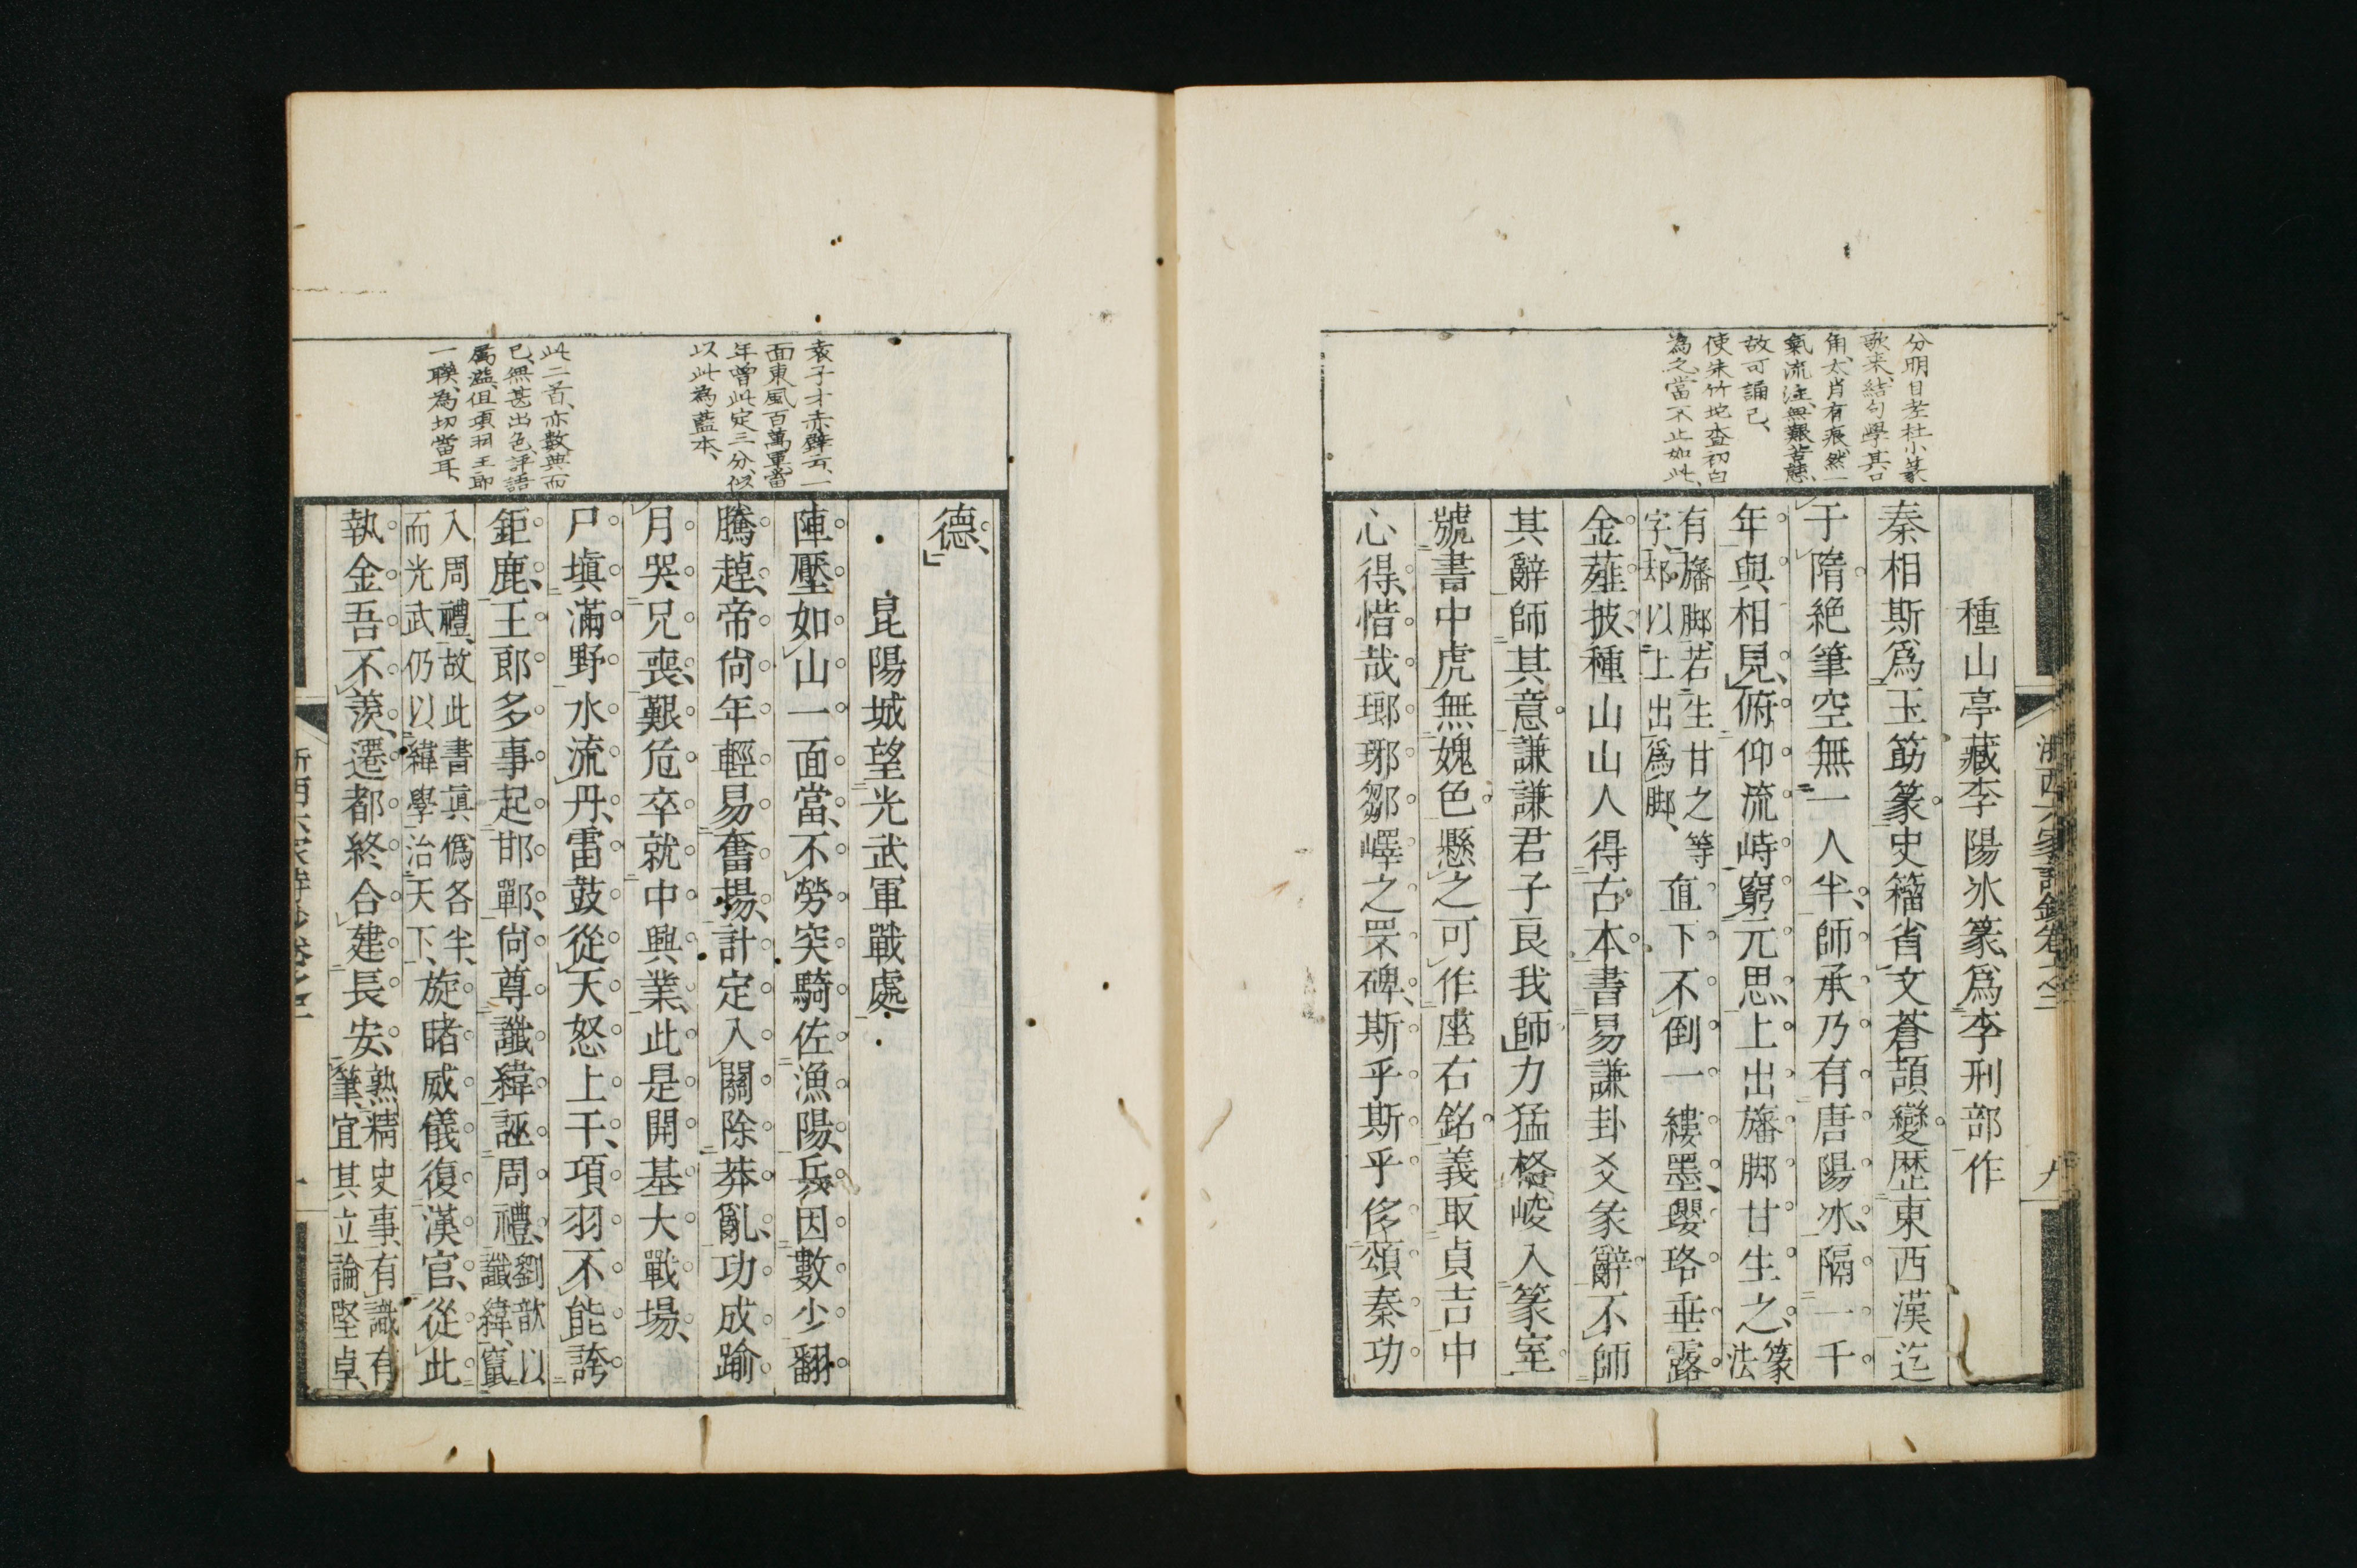 浙西六家詩鈔卷之二
九
分明自老杜小篆
歌来、結句學其口
角、太肖有痕、然一
氣流注、無艱苦態、
故可誦已、
使朱竹坨查初白
為之、當不止如此、
種山亭藏李陽冰篆、爲李刑部作
秦相斯爲玉筯篆史籀省文蒼頡變歴東西漢迄
于隋絶筆空無一人半、師承乃有唐陽冰、隔一千
年與相見、俯仰流峙窮元思、上出旛脚甘生之、篆法
有旛脚、若生甘之等
字、却以上出爲脚、
直下不倒一縷墨、瓔珞垂露
金薤披、種山山人得古本書易謙卦爻象辭不師
其辭師其意謙謙君子良我師力猛格峻入篆室
號書中虎無媿色懸之可作座右銘義取貞吉中
心得、惜哉瑯琊鄒嶧之罘碑、斯乎斯乎侈頌秦功
德、
袁子才赤壁云、一
面東風百萬軍、當
年曾此定三分、似
以此為藍本、
此二首、亦數典而
已、無甚出色、評語
属濫、但項羽王郎
一聯、為切當耳、
昆陽城望光武軍戰處
陣壓如山一面當、不勞突騎佐漁陽、兵因數少翻
騰趠、帝尙年輕易奮揚、計定入關除莽亂、功成踰
月哭兄喪、艱危卒就中興業、此是開基大戰場、
尸塡滿野水流丹、雷鼓從天怒上干、項羽不能誇
鉅鹿、王郎多事起邯鄲、尙尊讖緯誣周禮、劉歆以讖緯、竄
入周禮、故此書眞僞各半、
而光武仍以緯學治天下、
旋睹威儀復漢官、從此
執金吾不羨、遷都終合建長安、熟精史事、有識有
筆、宜其立論堅卓、